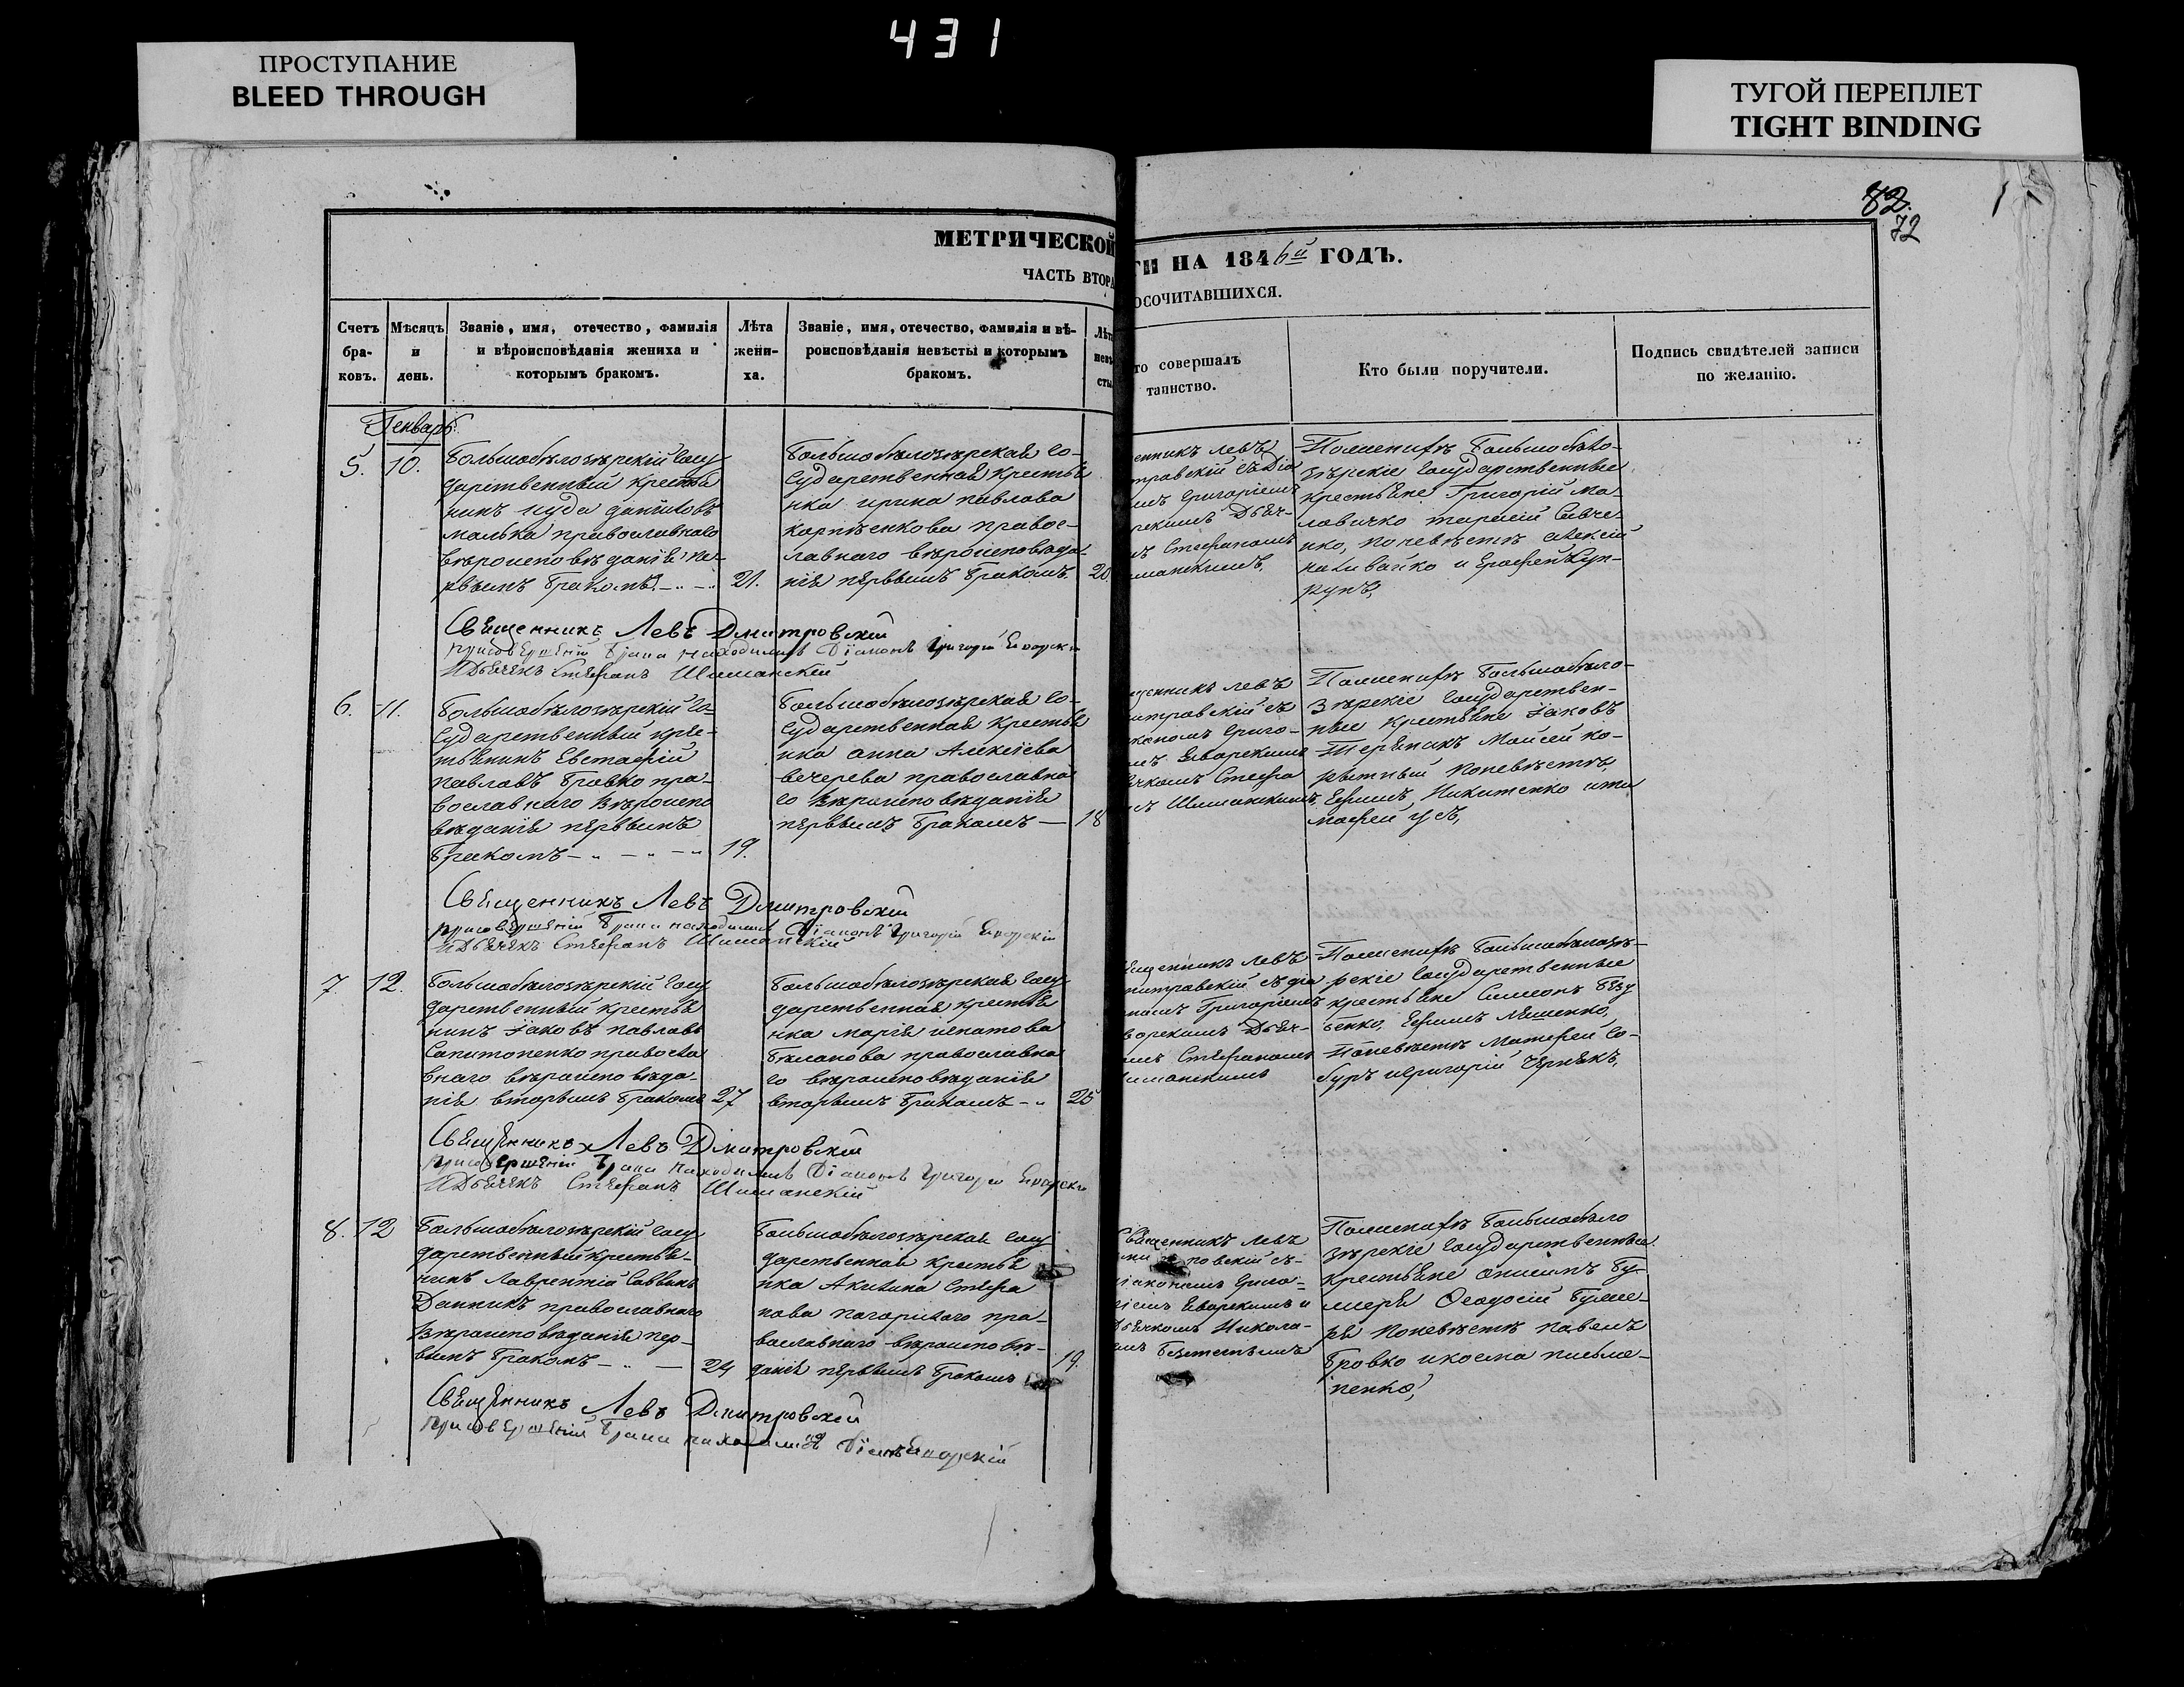 431
ПРОСТУПАНИЕ
BLEED THROUGH
ТУГОЙ ПЕРЕПЛЕТ
TIGHT BINDING
82.
72
МЕТРИЧЕСКОЙ
ТИ НА 1846й ГОДЪ.
ЧАСТЬ ВТОРА
ОСОЧИТАВШИХСЯ.
Счетъ бра- ковъ.
Мѣсяцъ и день.
Званіе, имя, отечество, фамилія
и вѣроисповѣданія жениха и
которымъ бракомъ.
Лѣта жени- ха.
Званіе, имя, отечество, фамилія и вѣ-
роисповѣданія невѣсты и которымъ
бракомъ.
Лѣта невѣ- сты
то совершалъ
таинство.
Кто были поручители.
Подпись свидѣтелей записи
по желанію.
Генварь.
5. 10.
Большобѣлозѣрскій Госу
дарственный крестья
нинъ Іуда Даниловъ
Малька православнаго
вѣроисповѣданія пе-
рвымъ бракомъ 21.
Большобѣлозѣрская Го-
сударственная крестья
нка Ирина Павлова
православнаго вѣроисповѣда-
нія первымъ бракомъ 20.
енникъ Левъ
тровскій съ Діа
мъ Григоріемъ
рскимъ Дьяч-
мъ Стефаномъ
манскимъ,
По женихѣ Большобѣло-
зѣрскіе Государственные
крестьяне Григорій Ма-
ловичко Тарасій Савче-
нко, по невѣстѣ Алексій
Наливайко и Ерофей
Священникъ Левъ Дмитровскій
при совершеніи брака находились Діаконъ Григорій
и Дьячекъ Стефанъ Шиманскій
6. 11.
Большобѣлозѣрскій Го-
сударственный кре-
стьянинъ Евстафій
Павловъ Бровко пра-
вославнаго вѣроиспо
вѣданія первымъ
бракомъ 19.
Большобѣлозѣрская Го-
сударственная крестья
нка Анна Алексіева
Вечерева православна
го вѣроисповѣданія
первымъ бракомъ 18
щенникъ Левъ
итровскій съ
кономъ Григо-
чкомъ Стефа
мъ Шиманскимъ
По женихѣ Большобѣло-
зѣрскіе Государствен-
ные крестьяне Іаковъ
Моисей Ко-
по невѣстѣ
Ефимъ Никитенко и Ти
мофей Усъ,
Священникъ Левъ Дмитровскій
при совершеніи брака находились Діаконъ Григорій
и Дьячекъ Стефанъ Шиманскій
7. 12.
Большобѣлозѣрскій Госу
дарственный крестья
нинъ Іаковъ Павловъ
Сапитоненко правосла
внаго вѣроисповѣда-
нія вторымъ бракомъ 27
Большобѣлозѣрская Госу
дарственная крестья
нка Марія Ипатова
Бѣланова православна
го вѣроисповѣданія
вторымъ бракомъ 25
ященникъ Левъ
митровскій съ Діа
номъ Григоріемъ
ворскимъ Дьяч-
омъ Стефаномъ
иманскимъ
По женихѣ Большобѣлозѣ-
рскіе Государственные
крестьяне Симеонъ
Ефимъ Ляшенко,
по невѣстѣ Матфей Со-
буръ и Григорій Чернякъ,
Священникъ Левъ Дмитровскій
при совершеніи брака находились Діаконъ Григорій
и Дьячекъ Стефанъ Шиманскій
8. 12
Большобѣлозѣрскій Госу
дарственный крестья-
нинъ Лаврентій Саввинъ
Данникъ православнаго
вѣроисповѣданія пер-
вымъ бракомъ 24
Большобѣлозѣрская Госу
дарственная крестья
нка Акилина Стефа
нова Погорилаго пра-
вославнаго вѣроисповѣ-
данія первымъ бракомъ 19.
Священникъ Левъ
ровскій съ
іакономъ Григо-
ріемъ Еворскимъ и
Дьячкомъ Никола-
емъ
По женихѣ Большобѣло
зѣрскіе Государственные
крестьяне Онисимъ Бу-
меря Ѳеодосій Буме-
ря по невѣстѣ Павелъ
Бровко и Косма Письме-
ненко,
Священникъ Левъ Дмитровскій
при совершеніи брака находились